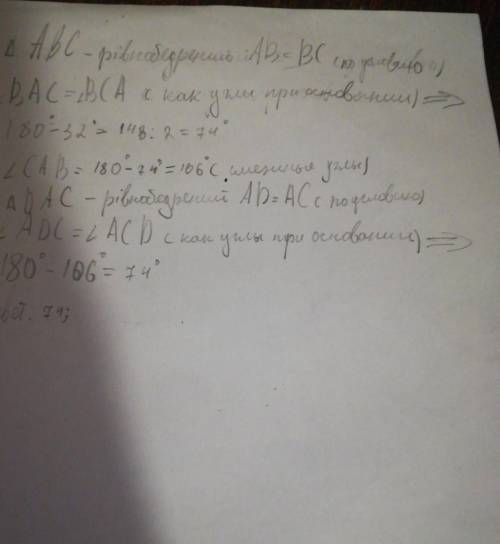 Δ ABC - рівнобедрений : AB = BC (по условию)
∠BAC = ∠BCA (как углы при основании) =>
180° - 32° = 148 : 2 = 74°
∠CAB = 180° - 74° = 106° (смежные углы)
Δ DAC - рівнобедрений AD = AC (по условию)
∠ADC = ∠ACD (как углы при основании) =>
180° - 106° = 74°
вет. 74;